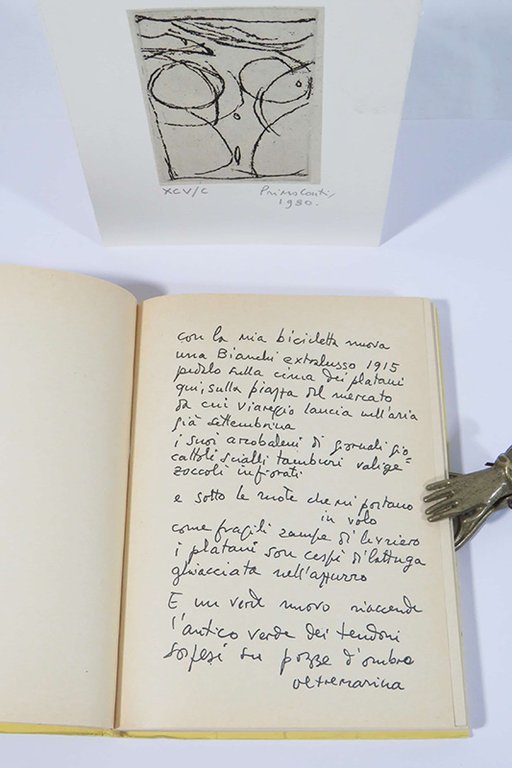 XCV/C
Primo Conti,
1980.
con la mia bicicletta nuova
una Bianchi extralusso 1915
pedalo sulla cima dei platani
qui, sulla piazza del mercato
da cui Viareggio lancia nell'aria
già settembrina
i suoi arcobaleni di giornali gio
cattoli scialli tamburi valige=
zoccoli infiorati
e sotto le ruote che mi portano
in volo
come fragili zampe di levriero
i platani son cespi di lattuga
ghiacciata nell'azzurro
E un verde nuovo riaccende
l'antico verde dei tendoni
sospesi su pozze d'ombra
oltremarina